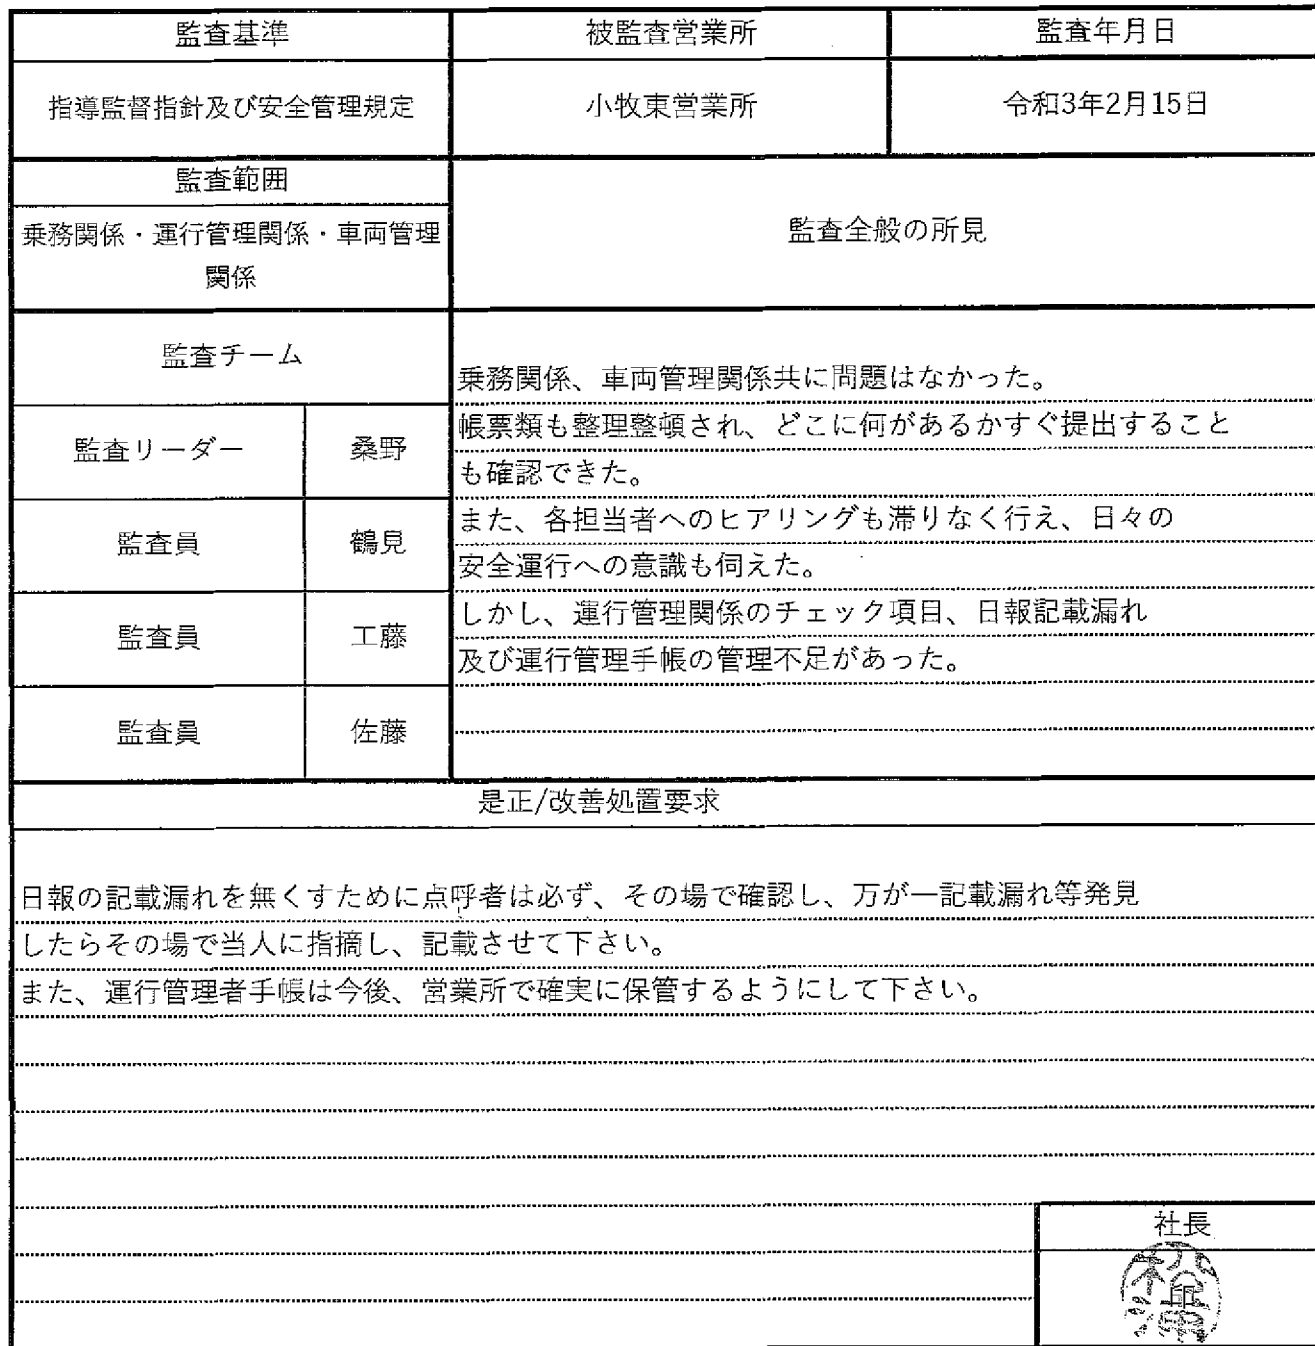 監査基準
被監査営業所
監査年月日
指導監督指針及び安全管理規定
小牧東営業所
令和3年2月15日
監査範囲
乗務関係・運行管理関係・車両管理
関係
監査全般の所見
監査チーム
監査リーダー
桑野
監査員
鶴見
監査員
工藤
監査員
佐藤
乗務関係、車両管理関係共に問題はなかった。
帳票類も整理整頓され、どこに何があるかすぐ提出すること
も確認できた。
また、各担当者へのヒアリングも滞りなく行え、日々の
安全運行への意識も伺えた。
しかし、運行管理関係のチェック項目、日報記載漏れ
及び運行管理手帳の管理不足があった。
是正/改善処置要求
日報の記載漏れを無くすために点呼者は必ず、その場で確認し、万が一記載漏れ等発見
したらその場で当人に指摘し、記載させて下さい。
また、運行管理者手帳は今後、営業所で確実に保管するようにして下さい。
社長